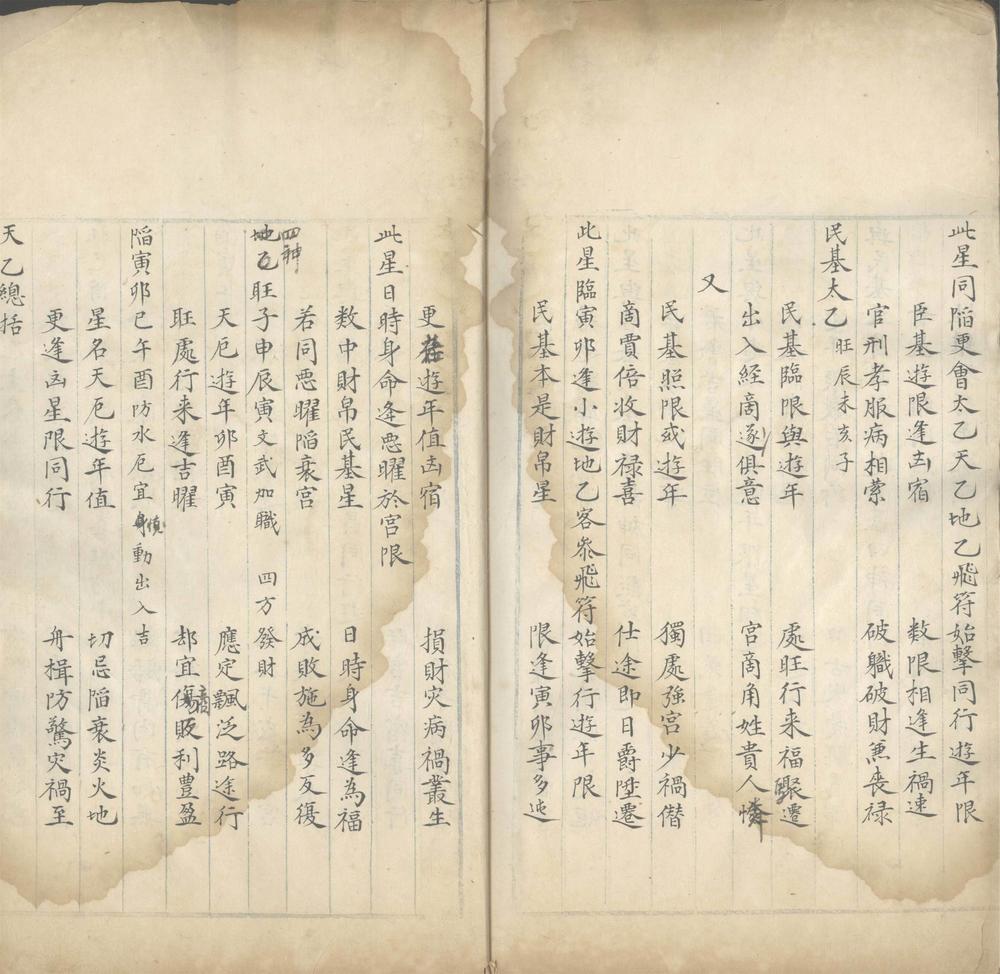 此星同陷更會太乙天乙地乙飛符始擊同行遊年限
臣基遊限逢凶宿 數限相逢生禍速
官刑孝服病相縈 破職破財兼喪禄
民基太乙 旺辰未亥子
民基臨限與遊年 處旺行来福驟遷
出入經商遂俱意 宮商角姓貴人憐
又
民基照限或遊年 獨處強宮少禍僣
商賈倍收財禄喜 仕途即日爵陞遷
此星臨寅卯逢小遊地乙客叅飛符始擊行遊年限
民基本是財帛星 限逢寅卯事多迍
更在遊年值凶宿 損財灾病禍叢生
此星日時身命逢惡曜於宮限
數中財帛民基星 日時身命逢為福
若同惡曜陷衰宮 成敗施為多反復
四神
地乙旺子申辰寅文武加職 四方發財
天厄遊年卯酉寅 應定飄泛路途行
旺處行来逢吉曜 却宜商販利豊盈
陷寅卯巳午酉防水厄宜慎動出入吉
星名天厄遊年值 切忌陷衰炎火地
更逢凶星限同行 舟楫防驚灾禍至
天乙總括